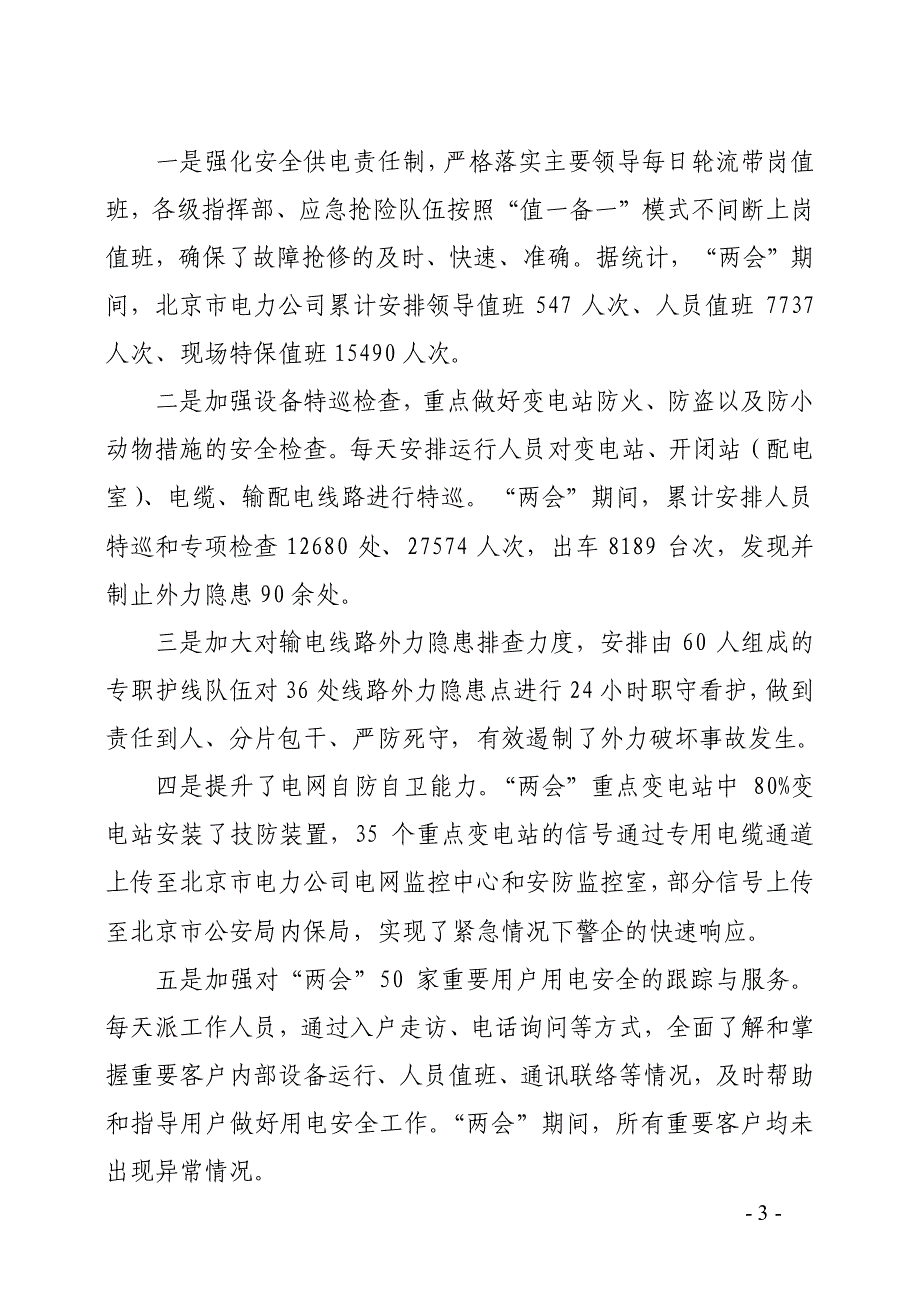 一是强化安全供电责任制，严格落实主要领导每日轮流带岗值
班，各级指挥部、应急抢险队伍按照“值一备一”模式不间断上岗
值班，确保了故障抢修的及时、快速、准确。据统计，“两会”期
间，北京市电力公司累计安排领导值班 547 人次、人员值班 7737
人次、现场特保值班 15490 人次。
二是加强设备特巡检查，重点做好变电站防火、防盗以及防小
动物措施的安全检查。每天安排运行人员对变电站、开闭站（配电
室）、电缆、输配电线路进行特巡。“两会”期间，累计安排人员
特巡和专项检查 12680 处、27574 人次，出车 8189 台次，发现并
制止外力隐患 90 余处。
三是加大对输电线路外力隐患排查力度，安排由 60 人组成的
专职护线队伍对 36 处线路外力隐患点进行 24 小时职守看护，做到
责任到人、分片包干、严防死守，有效遏制了外力破坏事故发生。
四是提升了电网自防自卫能力。“两会”重点变电站中 80%变
电站安装了技防装置，35 个重点变电站的信号通过专用电缆通道
上传至北京市电力公司电网监控中心和安防监控室，部分信号上传
至北京市公安局内保局，实现了紧急情况下警企的快速响应。
五是加强对“两会”50 家重要用户用电安全的跟踪与服务。
每天派工作人员，通过入户走访、电话询问等方式，全面了解和掌
握重要客户内部设备运行、人员值班、通讯联络等情况，及时帮助
和指导用户做好用电安全工作。“两会”期间，所有重要客户均未
出现异常情况。
- 3 -